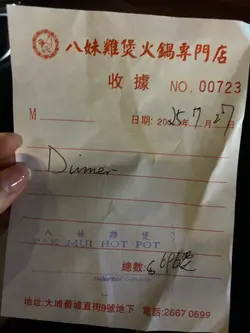 八妹雞煲火鍋專門店
收據 NO. 00723
M 日期: 2025年7月27日
Dinner
八妹雞煲
MUI HOT POT
總數:$696
地址:大埔舊墟直街9號地下 電話:2667 0699